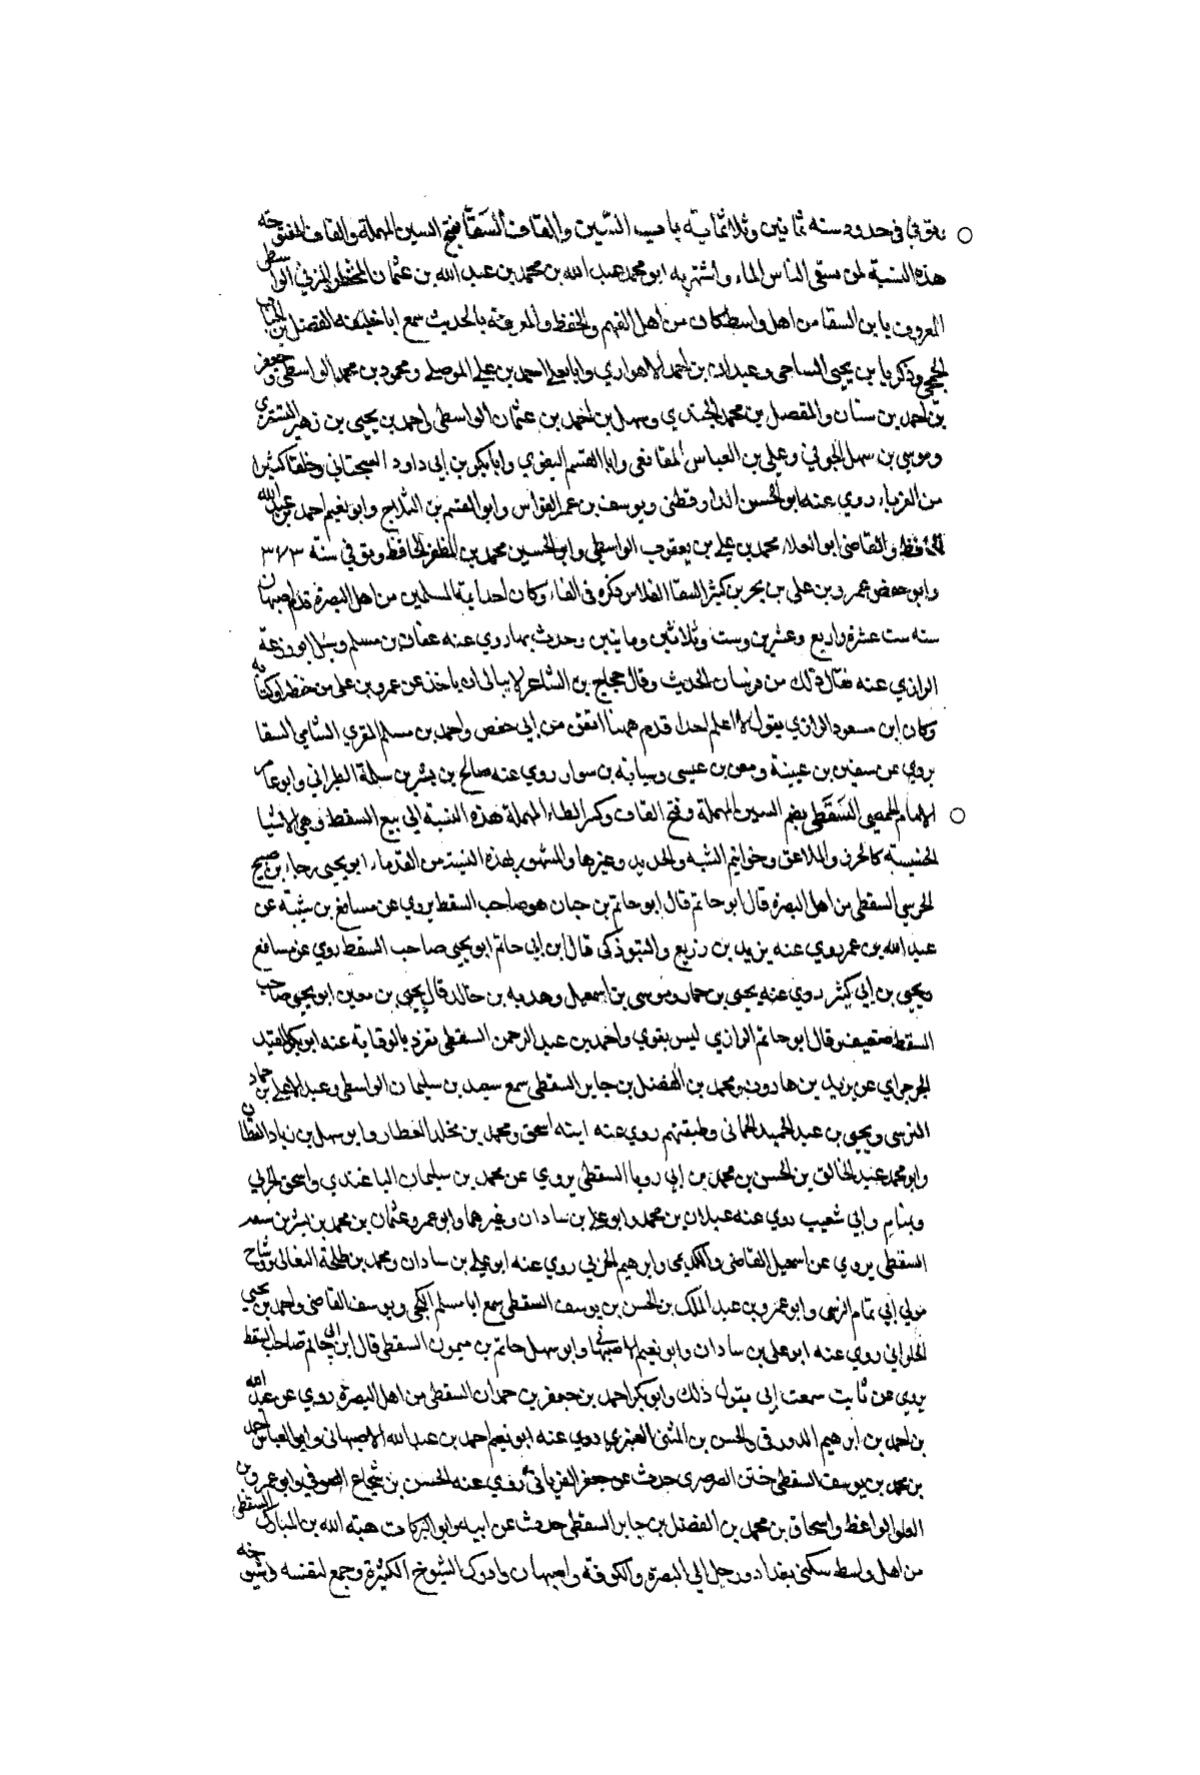 توفي في حدود سنه ثمانين وثلاثماية باب السين والقاف السَقّا بفتح السين المهملة والقاف المفتوحه
هذه النسبة لمن يسقى الناس الماء واشتهر به ابو محمد عبد الله بن محمد بن عبد الله بن عثمان المزني الواسطي
المعروف بابن السقا من اهل واسط كان من اهل الفهم والحفظ والمعرفة بالحديث سمع ابا خليفه الفضل بن الحباب
الجمحي وذكريا بن يحيى الساجى وعبدان بن احمد الاهوازي وابا يعلي احمد بن علي الموصلي ومحمود بن محمد الواسطى وجعفر
بن احمد بن سنان والمفضل بن محمد الجندي وسهل بن احمد بن عثمان الواسطى واحمد بن يحيى بن زهير التستري
وموسي بن سهل الجوني وعلي بن العباس المقانعى وابا القسم البغوي وابا بكر بن ابي داود السجستاني وخلقا كثيرا
من الغرباء روي عنه ابو الحسن الدارقطنى ويوسف بن عمر القواس وابو القسم بن الثلاج وابو نعيم احمد بن عبد الله
الحافظ والقاضى ابو العلاء محمد بن علي بن يعقوب الواسطي وابو الحسين محمد بن المظفر الحافظ وتوفي سنة ٣٧٣
وابو حفص عمرو بن على بن بحر بن كثير السقا الفلاس ذكره فى الفاء وكان احد ايمة المسلمين من اهل البصرة قدم اصبهان
سنه ست عشرة واربع وعشرين وست وثلاثين ومايتين وحدث بها روي عنه عفان بن مسلم وسئل ابو زرعة
الرازي عنه فقال ذلك من فرسان الحديث وقال حجاج بن الشاعر لا يبالى ان ياخذ عن عمرو بن على من حفظه او كتابه
وكان ابن مسعود الرازي يقول لا اعلم احدا قدم ههنا اتقن من ابي حفص واحمد بن مسلم المقري الشامي السقا
يروي عن سفين بن عيينة ومعن بن عيسى وسبابه بن سوار روي عنه صالح بن بشر بن سلمة الطبراني وابو عامر
الامام الحمصي السَقَطى بفتح السين المهملة وفتح القاف وكسر الطاء المهملة هذه النسبة الي بيع السقط وهي الاشيا
الخسيسه كالخرز والملاعق وخواتيم الشبه والحديد وغيرها والمشهور بهذه النسبة من القدماء ابو يحيى رجاء بن صبيح
الحرسي السقطى من اهل البصرة قال ابو حاتم قال ابو حاتم بن حبان هو صاحب السقط يروي عن مسافع بن شيبة عن
عبد الله بن عمر روي عنه يزيد بن زريع والتبوذكى قال ابن ابي حاتم ابو يحيى صاحب السقط روي عن مسافع
ويحيى بن ابي كثير روي عنه يحيى بن حماد وموسى بن اسمعيل وهدبه بن خالد قال يحيى بن معين ابو يحيى صاحب
السقط ضعيف وقال ابو حاتم الرازي ليس بقوي واحمد بن عبد الرحمن السقطى تفرد بالرواية عنه ابو بكر المفيد
الجرجراي عن يزيد بن هارون ومحمد بن الفضل بن جابر السقطى سمع سعيد بن سليمان الواسطى وعبد الاعلي بن حماد
النرسى ويحيى بن عبد الحميد الحمانى وطبقتهم روي عنه ابنه اسحق ومحمد بن مخلد العطار وابو سهل بن زياد القطان
وابو محمد عبد الخالق بن الحسن بن محمد بن ابي روبا السقطى يروي عن محمد بن سليمان الباغندي واسحق الحربي
وتمام وابي شعيب روي عنه عبدان بن محمد وابو علي بن سادان وغيرهما وابو عمرو عثمان بن محمد بن بشر بن سعد
السقطى يروي عن اسمعيل القاضى والكديمى وابرهيم الحربي روي عنه ابو علي بن سادان ومحمد بن طلحة النعالى ووشاح
مولي ابي تمام الزينبى وابو عمرو بن عبد الملك بن الحسن بن يوسف السقطى سمع ابا مسلم الكجى ويوسف القاضى واحمد بن يحيى
الحلواني روي عنه ابو على بن سادان وابو نعيم الاصبهانى وابو سهل حاتم بن ميمون السقطى قال ابن ابى حاتم صاحب السقط
يروي عن ثابت سمعت ابى يقول ذلك وابو بكر احمد بن جعفر بن حمدان السقطى من اهل البصرة روي عن عبد الله
بن احمد بن ابرهيم الدورقى والحسن بن المثنى العنبري روي عنه ابو نعيم احمد بن عبد الله الاصبهانى وابو العباس احمد
بن محمد بن يوسف السقطى ختن الصرصرى حدث عن جعفر الفريابى روي عنه الحسن بن شجاع الصوفي وابو عمرو بن
العلو الواعظ واسحاق بن محمد بن الفضل بن جابر السقطى حدث عن ابيه وابو البركات هبة الله بن المبارك السقطى
من اهل واسط سكن بغداد ورحل الي البصرة والكوفة واصبهان وادرك الشيوخ الكثيرة وجمع لنفسه وشيوخه